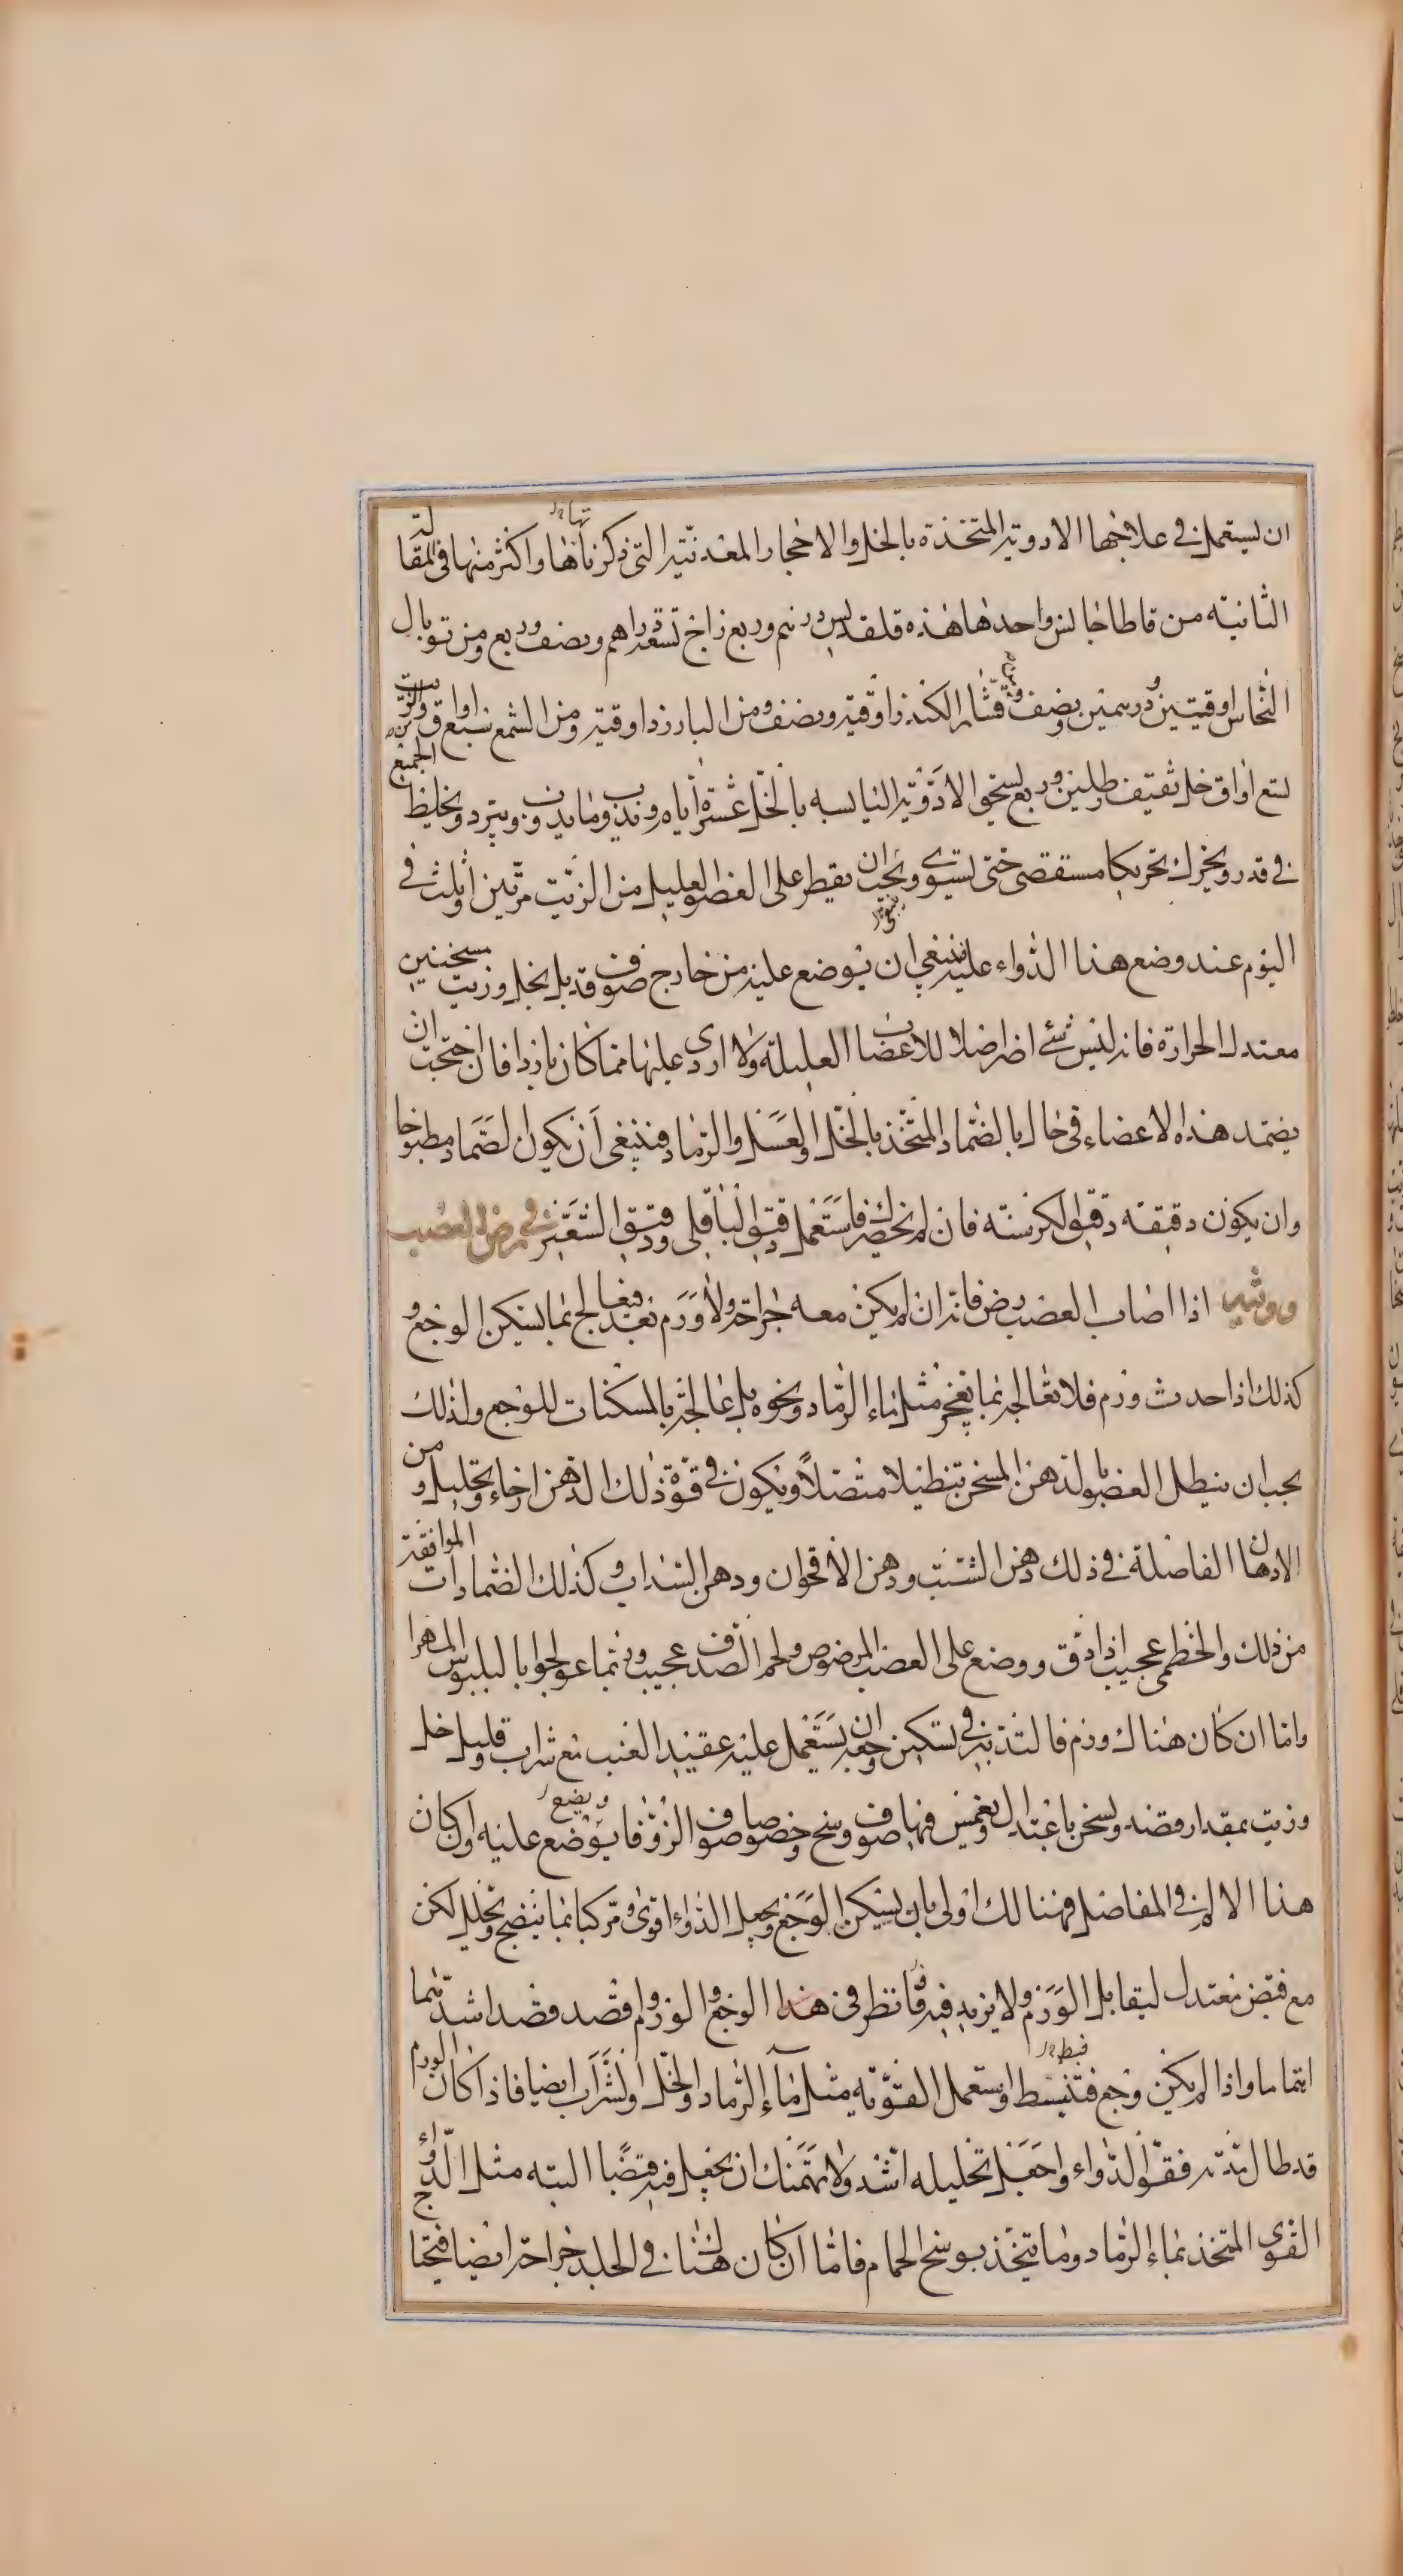 ان يستعمل في علاجها الادوية المتخذة بالخل والاحجار المعدنية التي ذكرناها واكثر منها في المقالة
الثانية من قاطاجانس واحدها هذه قلقديس درهم وربع زاج تسعة دراهم ونصف وربع ومن توبال
النحاس اوقيتين ودرهمين ونصف وقشار الكندر اوقية ونصف ومن البارزد اوقية ومن الشمع سبع اواق والزيت
تسع اواق خل ثقيف رطلين وربع يسحق الادوية اليابسه بالخل عشرة ايام ويذوب ما يذوب ويبرد ويخلط الجميع
في قدر ويحرك تحريكا مستقصى حتى يستوى ويجب ان يقطر على العضو العليل من الزيت مرتين او ثلث في
اليوم عند وضع هذا الدواء عليه فينبغي ان يوضع عليه من خارج صوف قد بل بخل وزيت مسخنين
معتدل الحرارة فانه ليس شئ اضر اصلا للاعضاب العليلة ولا اردى عليها مما كان باردا فان احتجت ان
يضمد هذه الاعضاء في حال بالضماد المتخذ بالخل والعسل والرماد فينبغى ان يكون الضماد مطبوخا
وان يكون دقيقه دقيق الكرسنه فان لم يحضرك فاستعمل دقيق الباقلى ودقيق الشعير في مرض العصب
ووثيها اذا اصاب العصب رض فانه ان لم يكن معه جراحة ولا ورم بعد فعالج بما يسكن الوجع و
كذلك اذا حدث ورم فلا تعالجه بما يفجر مثل ماء الرماد ونحوه بل عالجه بالمسكنات للوجع ولذلك
يجب ان ينطل العضو بالدهن المسخن تنطيلا متصلاً ويكون في قوة ذلك الدهن ارخاء وتحليل ومن
الادهان الفاضلة في ذلك دهن الشبت ودهن الاقحوان ودهن السداب وكذلك الضمادات الموافقة
من ذلك والخطمى عجيب اذا دق ووضع على العصب المرضوض ولحم الصدف عجيب وربما عولجوا بالبلبوس المهرا
واما ان كان هناك ورم فالتدبير في تسكين وجعه ان يستعمل عليه عقيد العنب مع شراب وقليل خل
وزيت بمقدار قصد ويسخن باعتدال ويغمس فيها صوف وسخ وخصوصا صوف الزوفا ويوضع عليه وان كان
هذا الالم في المفاصل فهنالك اولى بان يسكن الوجع ويجعل الدواء اقوى ومركبا بما ينضج ويحلل لكن
مع قبض معتدل ليقابل الورم ولا يزيد فيه وانظر في هذا الوجع والورم واقصد قصد اشدهما
اهتماما واذا لم يكن وجع فتبسط واستعمل القويه مثل ماء الرماد والخل والشراب ايضا فاذا كان الورم
قد طال مدته فقو الدواء واجعل تحليله اشد ولا يهمنك ان يجعل فيه قبضا البته مثل الدواء
القوى المتخذ بماء الرماد وما يتخذ بوسخ الحمام فاما ان كان هناك في الجلد جراحة ايضا فيحتاج